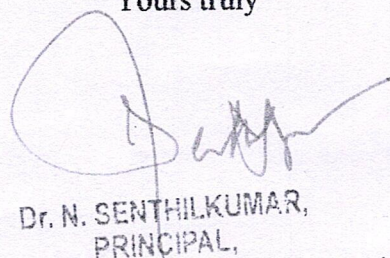 Yours truly
Dr. N. SENTHILKUMAR,
PRINCIPAL,